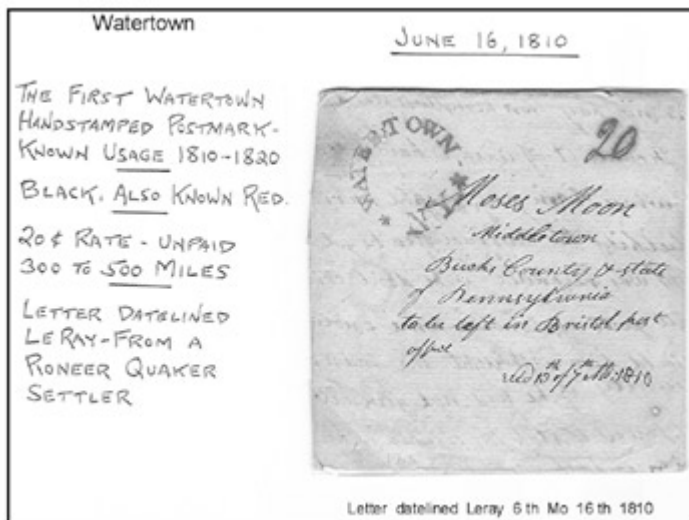 Watertown
JUNE 16, 1810
THE FIRST WATERTOWN
HANDSTAMPED POSTMARK-
KNOWN USAGE 1810-1820
BLACK. ALSO KNOWN RED.
20¢ RATE - UNPAID
300 TO 500 MILES
LETTER DATELINED
LERAY-FROM A
PIONEER QUAKER
SETTLER
WATERTOWN.
N.Y.
20
Moses Moon
Middletown
Bucks County & state
of Pennsylvania
to be left in Bristol post
office
recd 13th of 7th Mo: 1810
Letter datelined Leray 6 th Mo 16 th 1810